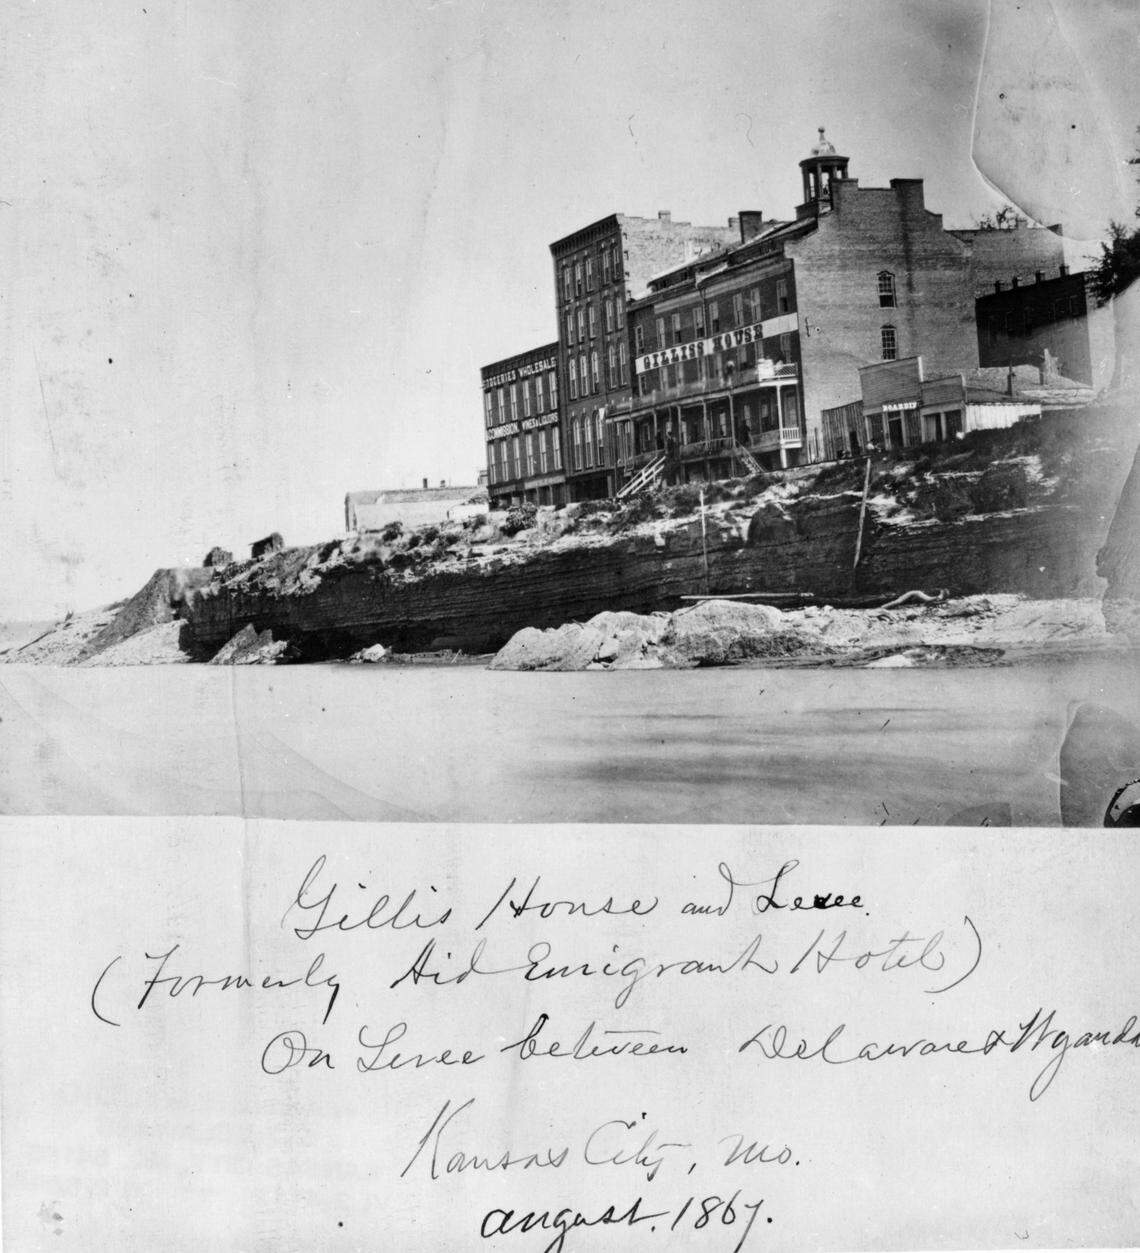 GROCERIES WHOLESALE
COMMISSION, WINES & LIQUORS
GILLISS HOUSE
BOARDIN
Gillis House and Levee.
(Formerly Aid Emigrant Hotel)
On Levee between Delaware & Wyando
Kansas City, Mo.
August, 1867.